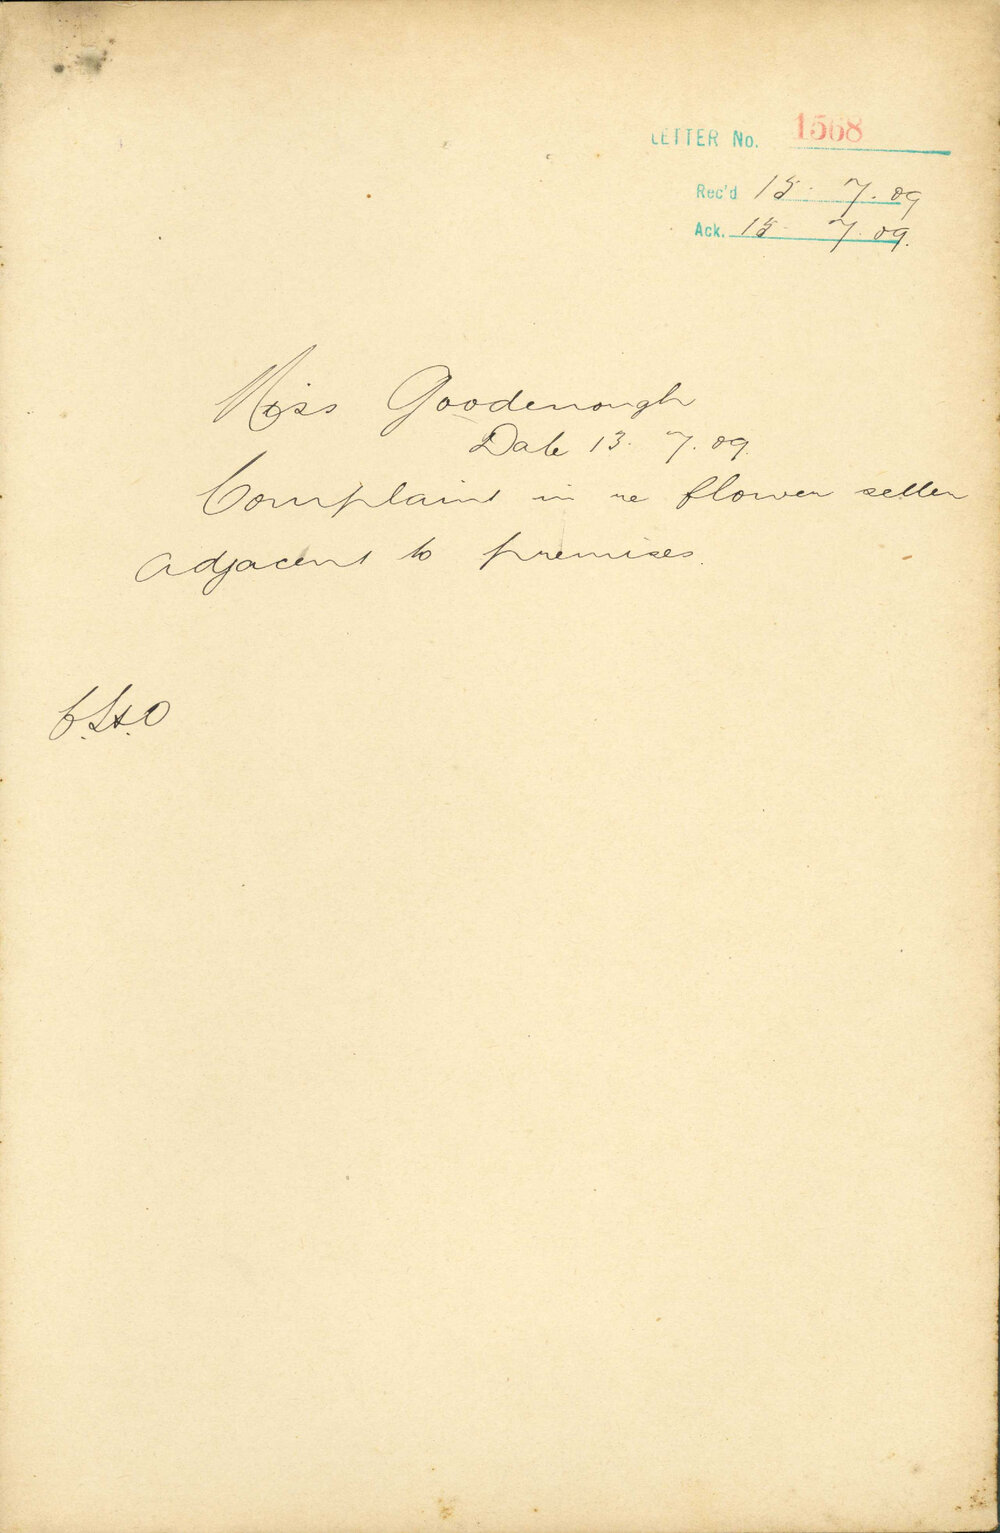 LETTER No. 1568
Rec'd 15. 7. 09
Ack. 15. 7. 09.
Miss Goodenough
Date 13. 7. 09.
Complaint in re flower seller
adjacent to premises.